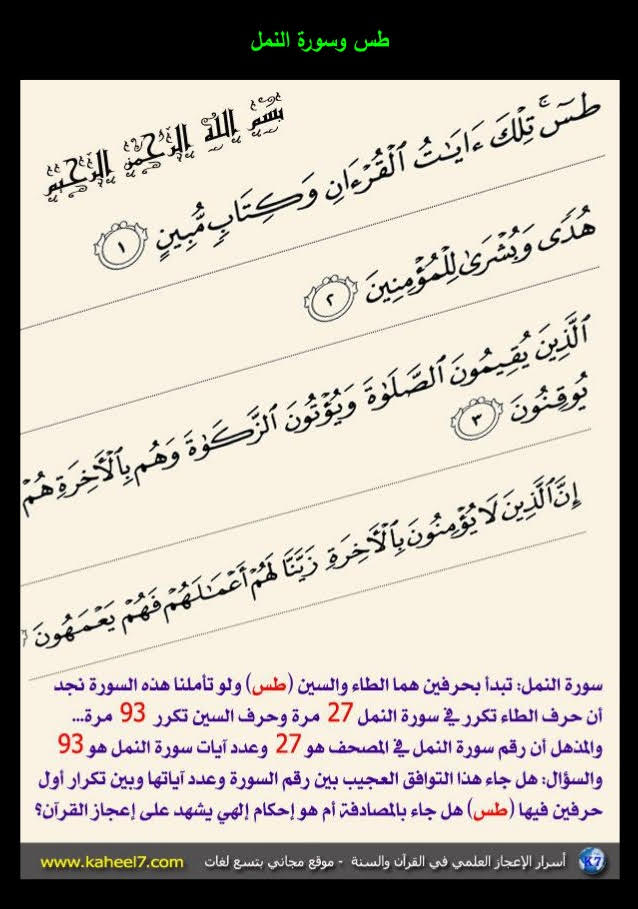 طس وسورة النمل
بِسْمِ اللَّهِ الرَّحْمَٰنِ الرَّحِيمِ
طسٓ ۚ تِلْكَ ءَايَـٰتُ ٱلْقُرْءَانِ وَكِتَابٍ مُّبِينٍ ١
هُدًى وَبُشْرَىٰ لِلْمُؤْمِنِينَ ٢
ٱلَّذِينَ يُقِيمُونَ ٱلصَّلَوٰةَ وَيُؤْتُونَ ٱلزَّكَوٰةَ وَهُم بِٱلْأَخِرَةِ هُمْ
يُوقِنُونَ ٣
إِنَّ ٱلَّذِينَ لَا يُؤْمِنُونَ بِٱلْأَخِرَةِ زَيَّنَّا لَهُمْ أَعْمَـٰلَهُمْ فَهُمْ يَعْمَهُونَ
سورة النمل: تبدأ بحرفين هما الطاء والسين (طس) ولو تأملنا هذه السورة نجد
أن حرف الطاء تكرر في سورة النمل 27 مرة وحرف السين تكرر 93 مرة...
والمذهل أن رقم سورة النمل في المصحف هو 27 وعدد آيات سورة النمل هو 93
والسؤال: هل جاء هذا التوافق العجيب بين رقم السورة وعدد آياتها وبين تكرار أول
حرفين فيها (طس) هل جاء بالمصادفة أم هو إحكام إلهي يشهد على إعجاز القرآن؟
K7 أسرار الإعجاز العلمي في القرآن والسنة - موقع مجاني بتسع لغات www.kaheel7.com